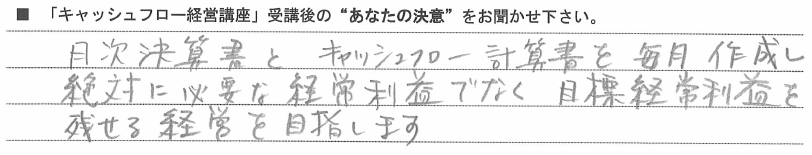 ■ 「キャッシュフロー経営講座」受講後の“あなたの決意”をお聞かせ下さい。
月次決算書と キャッシュフロー計算書を毎月作成し
絶対に必要な経常利益でなく 目標経常利益を
残せる経営を目指します